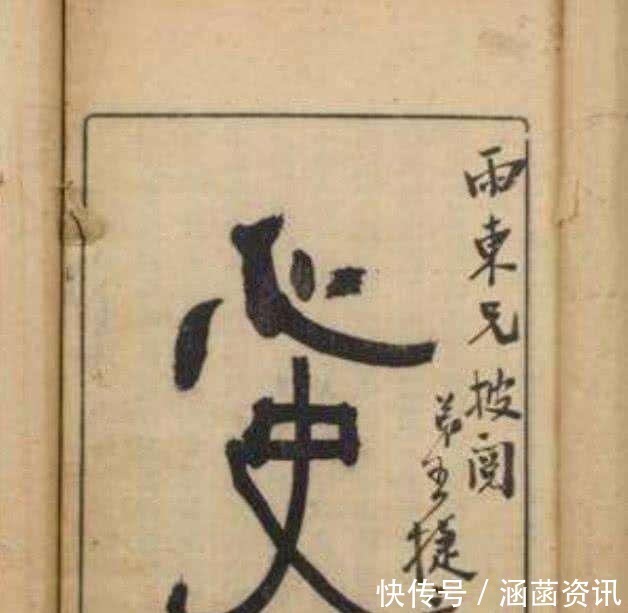 雨東兄披閱
弟王捷
心史
快传号 / 涵菡资讯